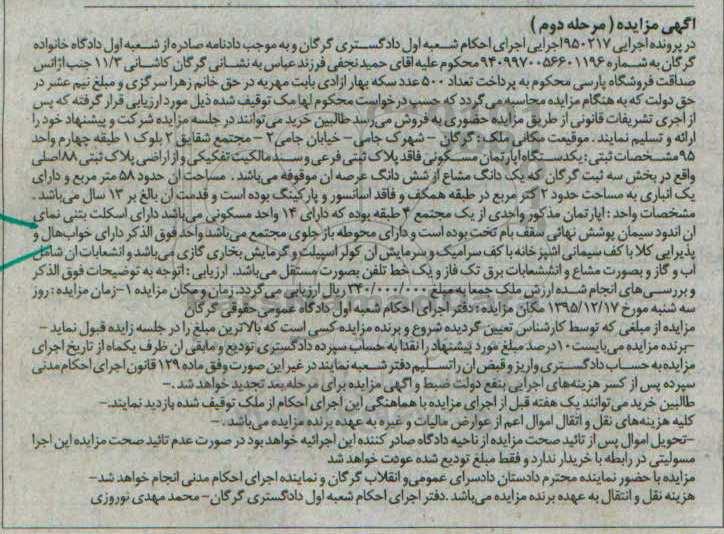 آگهی مزایده (مرحله دوم)
در پرونده اجرایی ۹۵۰۲۱۷ اجرایی اجرای احکام شعبه اول دادگستری گرگان و به موجب دادنامه صادره از شعبه اول دادگاه خانواده
گرگان به شماره ۹۴۰۹۹۷۰۰۵۶۶۰۱۱۹۶ محکوم علیه آقای حمید نجفی فرزند عباس به نشانی گرگان کاشانی ۱۱/۳ جنب آژانس
صداقت فروشگاه پارسی محکوم به پرداخت تعداد ۵۰۰ عدد سکه بهار آزادی بابت مهریه در حق خانم زهرا سرگزی و مبلغ نیم عشر در
حق دولت که به هنگام مزایده محاسبه می گردد که حسب درخواست محکوم لها ملک توقیف شده ذیل مورد ارزیابی قرار گرفته که پس
از اجری تشریفات قانونی از طریق مزایده حضوری به فروش می رسد طالبین خرید می توانند در جلسه مزایده شرکت و پیشنهاد خود را
ارائه و تسلیم نمایند . موقیعت مکانی ملک : گرگان – شهرک جامی – خیابان جامی ۲ – مجتمع شقایق ۲ بلوک ۱ طبقه چهارم واحد
۹۵ مشخصات ثبتی : یکدستگاه آپارتمان مسکونی فاقد پلاک ثبتی فرعی و سند مالکیت تفکیکی و از اراضی پلاک ثبتی ۸۸ اصلی
واقع در بخش سه ثبت گرگان که یک دانگ مشاع از شش دانگ عرصه آن موقوفه می باشد . مساحت آن حدود ۵۸ متر مربع و دارای
یک انباری به مساحت حدود ۲ کتر مربع در طبقه همکف و فاقد آسانسور و پارکینگ بوده است و قدمت آن بالغ بر ۱۳ سال می باشد .
مشخصات واحد : آپارتمان مذکور واحدی از یک مجتمع ۴ طبقه بوده که دارای ۱۴ واحد مسکونی می باشد دارای اسکلت بتنی نمای
آن اندود سیمان پوشش نهائی سقف بام تخت بوده است و دارای محوطه باز جلوی مجتمع می باشد واحد فوق الذکر دارای خواب هال و
پذیرایی کلا با کف سیمانی آشپزخانه با کف سرامیک و سرمایش آن کولر اسپیلت و گرمایش بخاری گازی می باشد و انشعابات آن شامل
آب و گاز و بصورت مشاع و انشعبابات برق تک فاز و یک خط تلفن بصورت مستقل می باشد. ارزیابی : اتوجه به توضیحات فوق الذکر
و بررسی های انجام شده ارزش ملک جمعا به مبلغ ۳۴۰/۰۰۰/۰۰۰ ریال ارزیابی می گردد. زمان و مکان مزایده ۱-زمان مزایده : روز
سه شنبه مورخ ۱۳۹۵/۱۲/۱۷ مکان مزایده : دفتر اجرای احکام شعبه اول دادگاه عمومی حقوقی گرگان
مزایده از مبلغی که توسط کارشناس تعیین گردیده شروع و برنده مزایده کسی است که بالاترین مبلغ را در جلسه زایده قبول نماید –
-برنده مزایده می بایست ۱۰ درصد مبلغ مورد پیشنهاد را نقدا به حساب سپرده دادگستری تودیع و مابقی آن ظرف یکماه از تاریخ اجرای
مزایده به حساب دادگستری واریز و قبض آن را تسلیم دفتر شعبه نمایند در غیر این صورت وفق ماده ۱۲۹ قانون اجرای احکام مدنی
سپرده پس از کسر هزینه های اجرایی بنفع دولت ضبط و آگهی مزایده برای مرحله بعد تجدید خواهد شد .–
طالبین خرید می توانند یک هفته قبل از اجرای مزایده با هماهنگی این اجرای احکام از ملک توقیف شده بازدید نمایند.–
کلیه هزینه های نقل و انقال اموال اعم از عوارض مالیات و غیره به عهده برنده مزایده می باشد.–
-تحویل اموال پس از تائید صحت مزایده از ناحیه دادگاه صادر کننده این اجرائیه خواهد بود در صورت عدم تائید صحت مزایده این اجرا
مسولیتی در رابطه با خریدار ندارد و فقط مبلغ تودیع شده عودت خواهد شد
مزایده با حضور نماینده محترم دادستان دادسرای عمومی و انقلاب گرگان و نماینده اجرای احکام مدنی انجام خواهد شد–
هزینه نقل و انتقال به عهده برنده مزایده می باشد .دفتر اجرای احکام شعبه اول دادگستری گرگان – محمد مهدی نوروزی